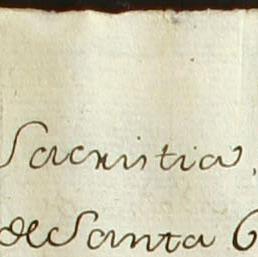 Sacristia,
de Santa